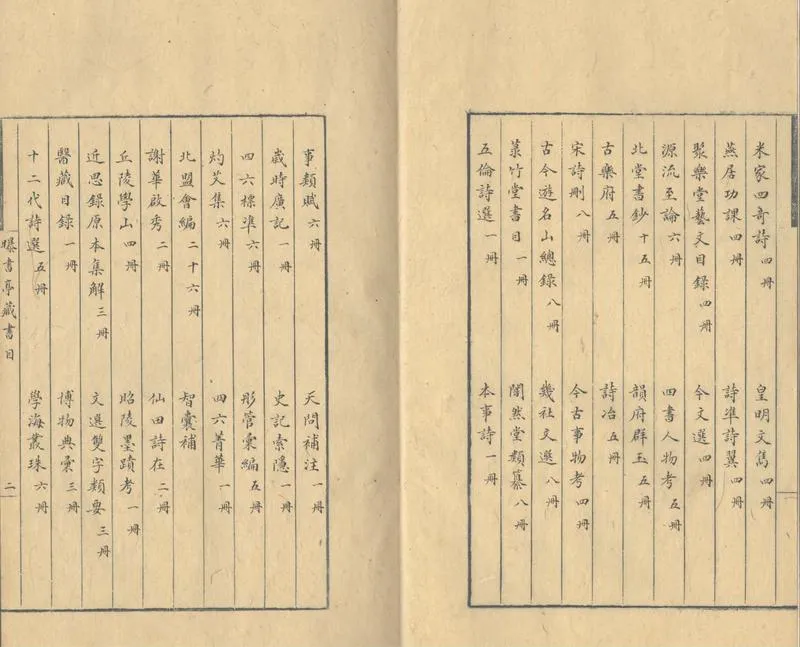 米家四奇詩四冊 皇明文雋四冊
燕居功課四冊 詩準詩翼四冊
聚樂堂藝文目錄四冊 今文選四冊
源流至論六冊 四書人物考五冊
北堂書鈔十五冊 韻府群玉五冊
古樂府五冊 詩冶五冊
宋詩刪八冊 今古事物考四冊
古今遊名山總錄八冊 幾社文選八冊
菉竹堂書目一冊 闇然堂類纂八冊
五倫詩選一冊 本事詩一冊
事類賦六冊 天問補注一冊
歲時廣記一冊 史記索隱一冊
四六標準六冊 彤管彙編五冊
灼艾集六冊 四六菁華一冊
北盟會編二十六冊 智囊補
謝華啟秀二冊 仙田詩在二冊
丘陵學山四冊 昭陵墨蹟考一冊
近思錄原本集解三冊 文選雙字類要三冊
醫藏目錄一冊 博物典彙三冊
十二代詩選五冊 學海叢珠六冊
曝書亭藏書目 二